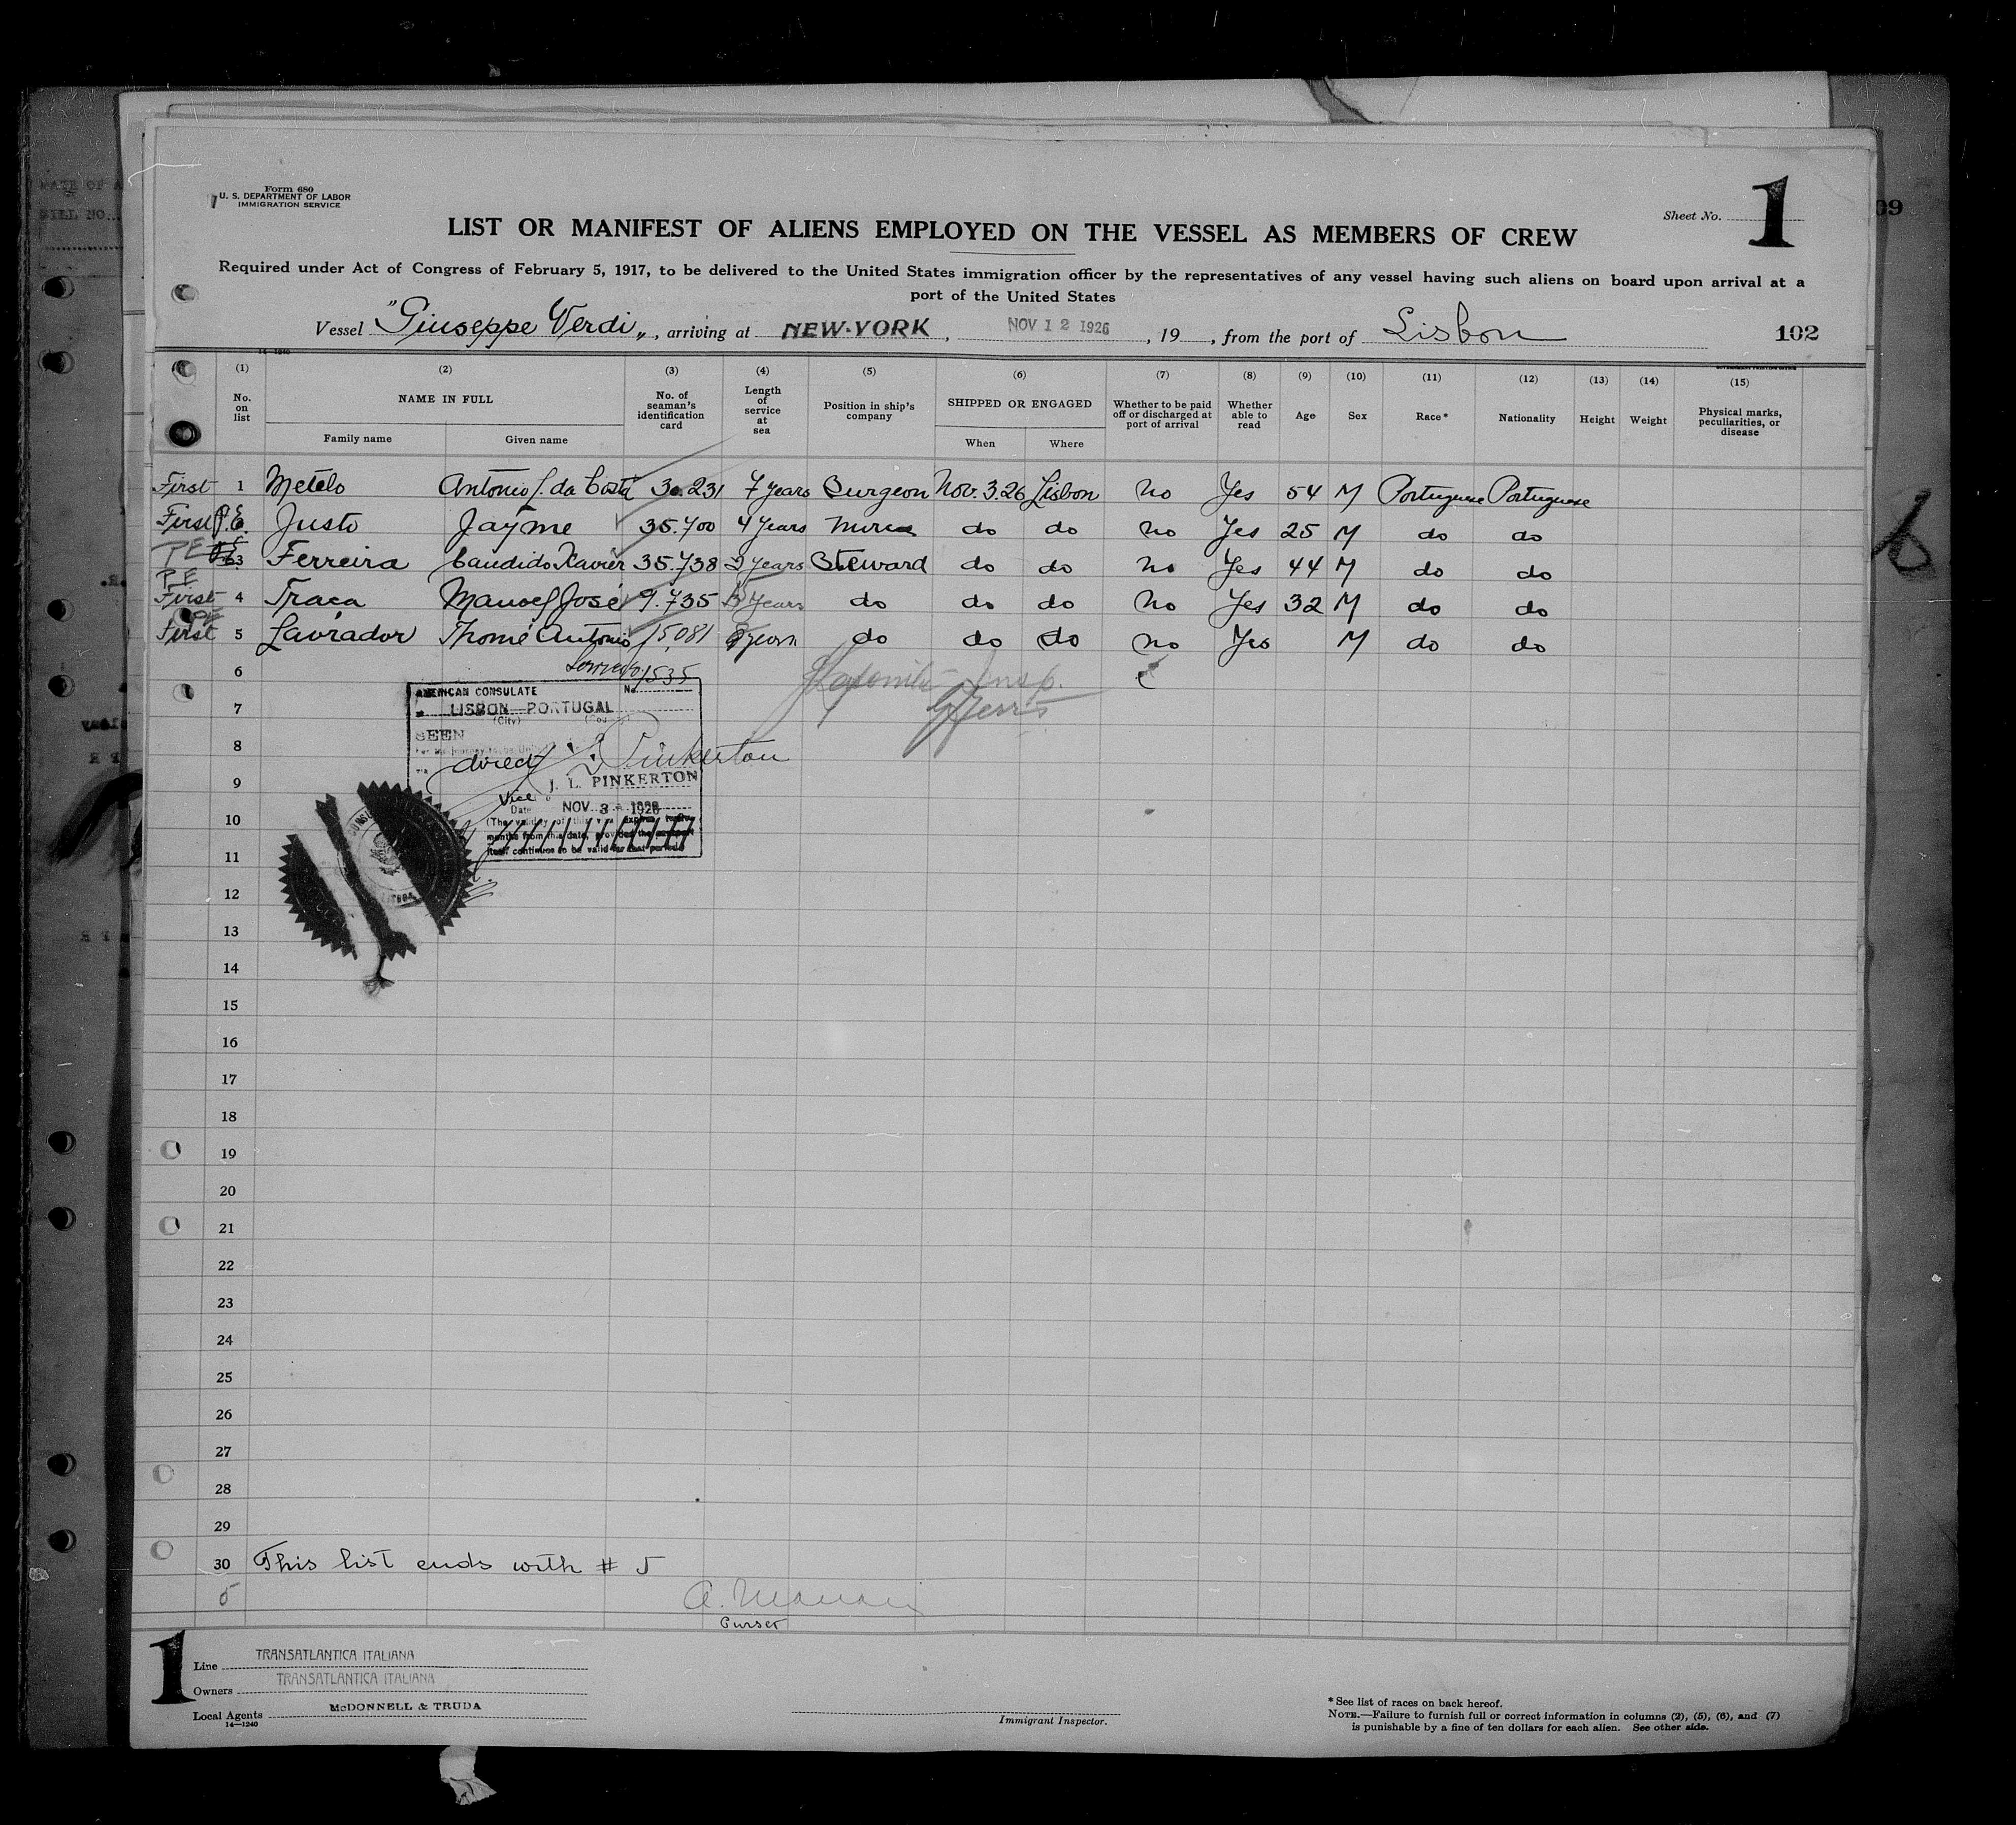 Form 680
U. S. DEPARTMENT OF LABOR
IMMIGRATION SERVICE
Sheet No. 1
LIST OR MANIFEST OF ALIENS EMPLOYED ON THE VESSEL AS MEMBERS OF CREW
Required under Act of Congress of February 5, 1917, to be delivered to the United States immigration officer by the representatives of any vessel having such aliens on board upon arrival at a
port of the United States
Vessel "Giuseppe Verdi", arriving at NEW-YORK, NOV 12 1926, 19, from the port of Lisbon 102
(1) (2) (3) (4) (5) (6) (7) (8) (9) (10) (11) (12) (13) (14) (15)
No. on list NAME IN FULL Family name Given name No. of seaman's identification card Length of service at sea Position in ship's company SHIPPED OR ENGAGED When Where Whether to be paid off or discharged at port of arrival Whether able to read Age Sex Race* Nationality Height Weight Physical marks, peculiarities, or disease
First 1 Metelo Antonio J. da Costa 30.231 7 years Surgeon Nov. 3.26 Lisbon No Yes 54 M Portuguese Portuguese
First P.E. Justo Jayme 35.700 4 years do do no Yes 25 M do do
PE 3 Ferreira Candido Xavier 35.738 3 years Steward do do no Yes 44 M do do
PE
First 4 Traca Manoel José 9.735 years do do do No Yes 32 M do do
First 5 Lavrador Thomé Antonio 15,081 years do do do no Yes M do do
6
AMERICAN CONSULATE No. 1535
7
LISBON PORTUGAL
(City)
SEEN
8
direct Pinkerton
9
J. L. PINKERTON
Vice
Date NOV 3 1926
10
11
12
13
14
15
16
17
18
19
20
21
22
23
24
25
26
27
28
29
30 This list ends with # 5
5
Purser
1
Line TRANSATLANTICA ITALIANA
Owners TRANSATLANTICA ITALIANA
Local Agents McDONNELL & TRUDA
14—1240
Immigrant Inspector.
* See list of races on back hereof.
NOTE.—Failure to furnish full or correct information in columns (2), (5), (6), and (7)
is punishable by a fine of ten dollars for each alien. See other side.